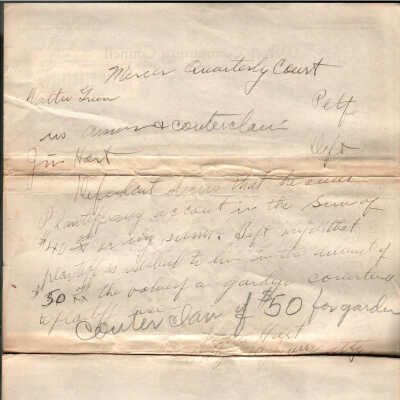 Mercer Quarterly Court
Walter Green Pltf
vs answer & couterclaim
Jim Hart Deft
Defendent denies that he owes
Plantiff any account in the sum of
$40 or any sum. Deft says that
plantiff is to him in the amount of
$50 the value of a garden
to plantiff
Couter claim of $50 for garden
Hart